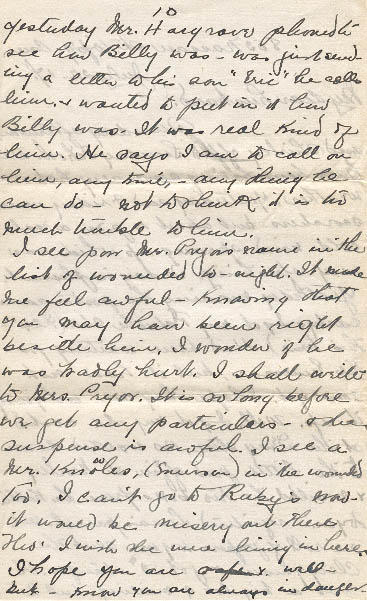 10
yesterday Mr. Hargrave phoned to
see how Billy was - was just send-
ing a letter to his son "Eric" he calls
him. & wanted to put in it how
Billy was. It was real kind of
him. He says I am to call on
him, any time, - any thing he
can do - not to think it is too
much trouble to him.
I see poor Mr. Pryor's name in the
list of wounded to-night. It made
me feel awful - knowing that
you may have been right
beside him. I wonder if he
was badly hurt. I shall write
to Mrs. Pryor. It is so long before
we get any particulars - & the
suspense is awful. I see a
Mr. (Emerson) in the wounded
too. I can't go to now -
it would be misery out there
Tho' I wish she were living in here.
I hope you are safe & well -
but - know you are always in danger.